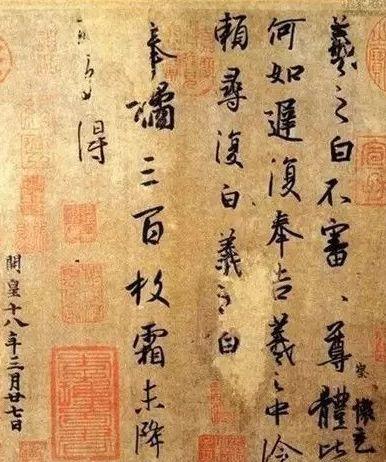 羲之白不審、尊體比
何如遲復奉告羲之中冷
賴尋復白羲之白
奉橘三百枚霜未降
可多得
開皇十八年三月廿七日
察 懷充